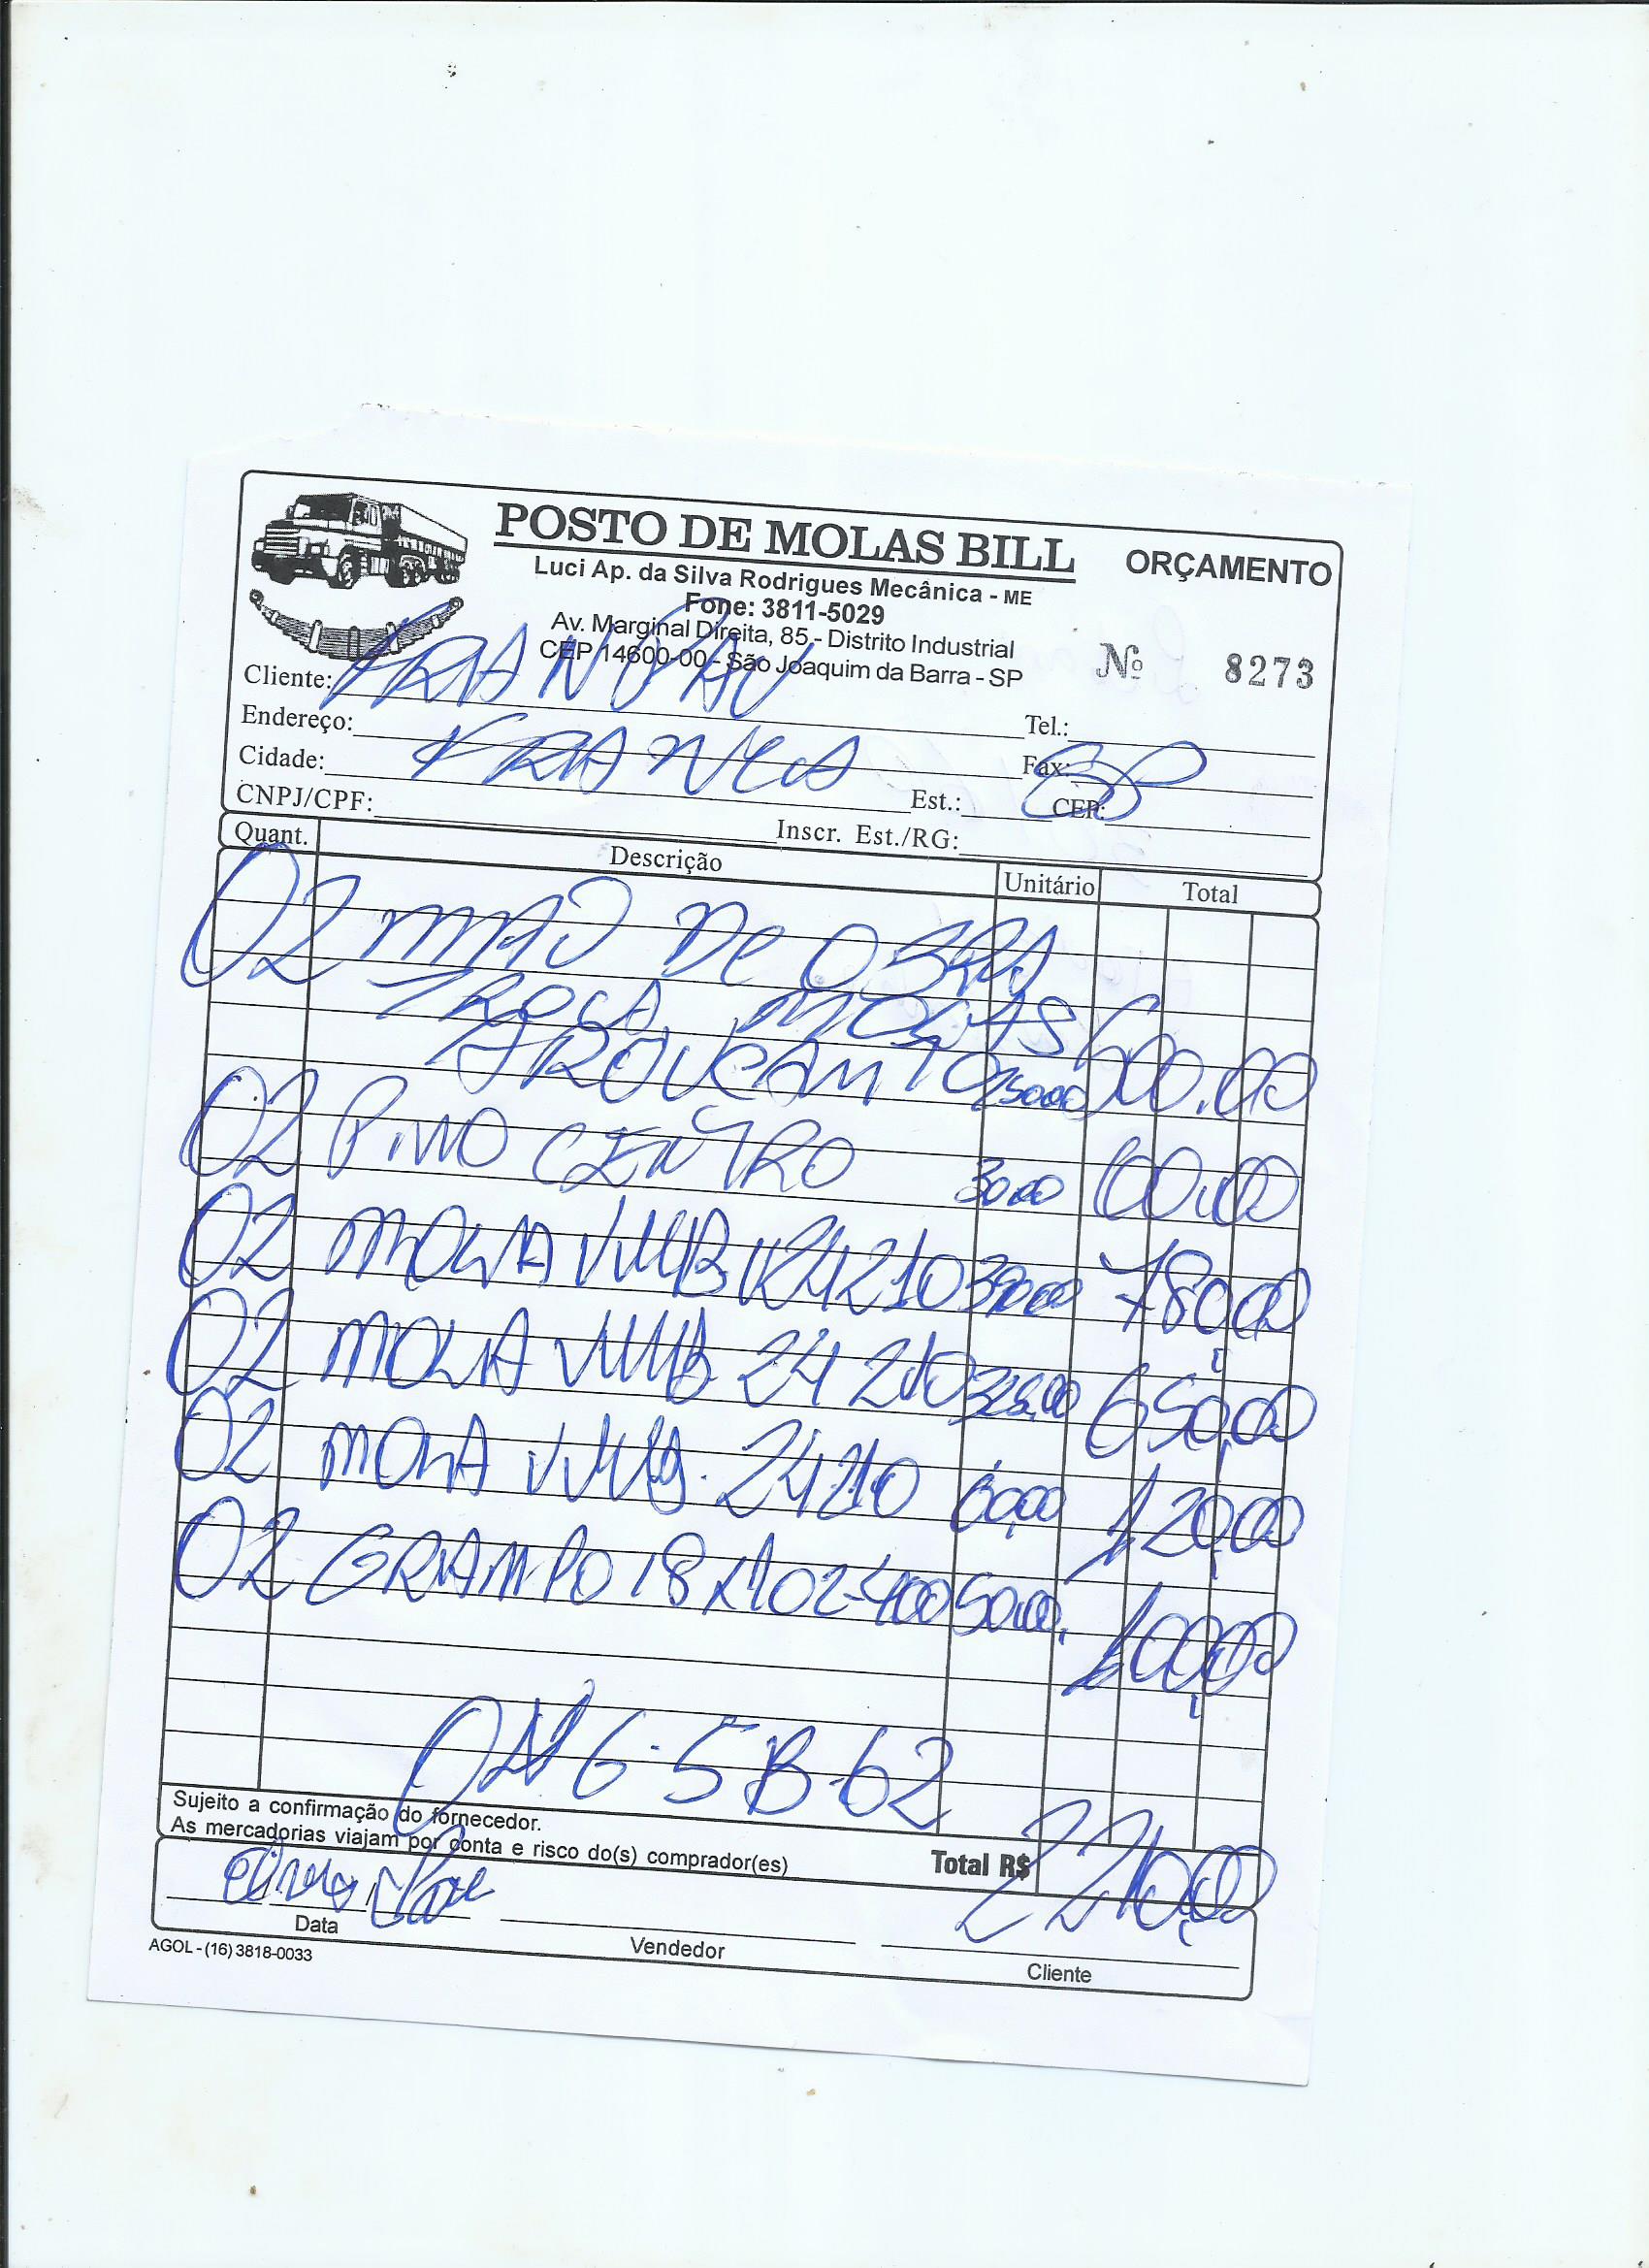 POSTO DE MOLAS BILL
ORÇAMENTO
Luci Ap. da Silva Rodrigues Mecânica - ME
Fone: 3811-5029
Av. Marginal Direita, 85 - Distrito Industrial
CEP 14600-00 - São Joaquim da Barra - SP
Nº 8273
Cliente:
Tel.:
Endereço:
Fax:
Cidade: FRANCA
Est.: CEP: SP
CNPJ/CPF:
Inscr. Est./RG:
Quant. Descrição Unitário Total
02 MAO De OBRA
TROCA MOLAS 600.00
02 PINO CENTRO 100.00
02 MOLA 24210 390,00 780,00
02 MOLA 24210 325,00 650,00
02 MOLA 24210 60,00 120,00
02 GRAMPO 18X102-400 50,00 100,00
Sujeito a confirmação do fornecedor.
As mercadorias viajam por conta e risco do(s) comprador(es)
Total R$
Data
Vendedor
Cliente
AGOL - (16) 3818-0033